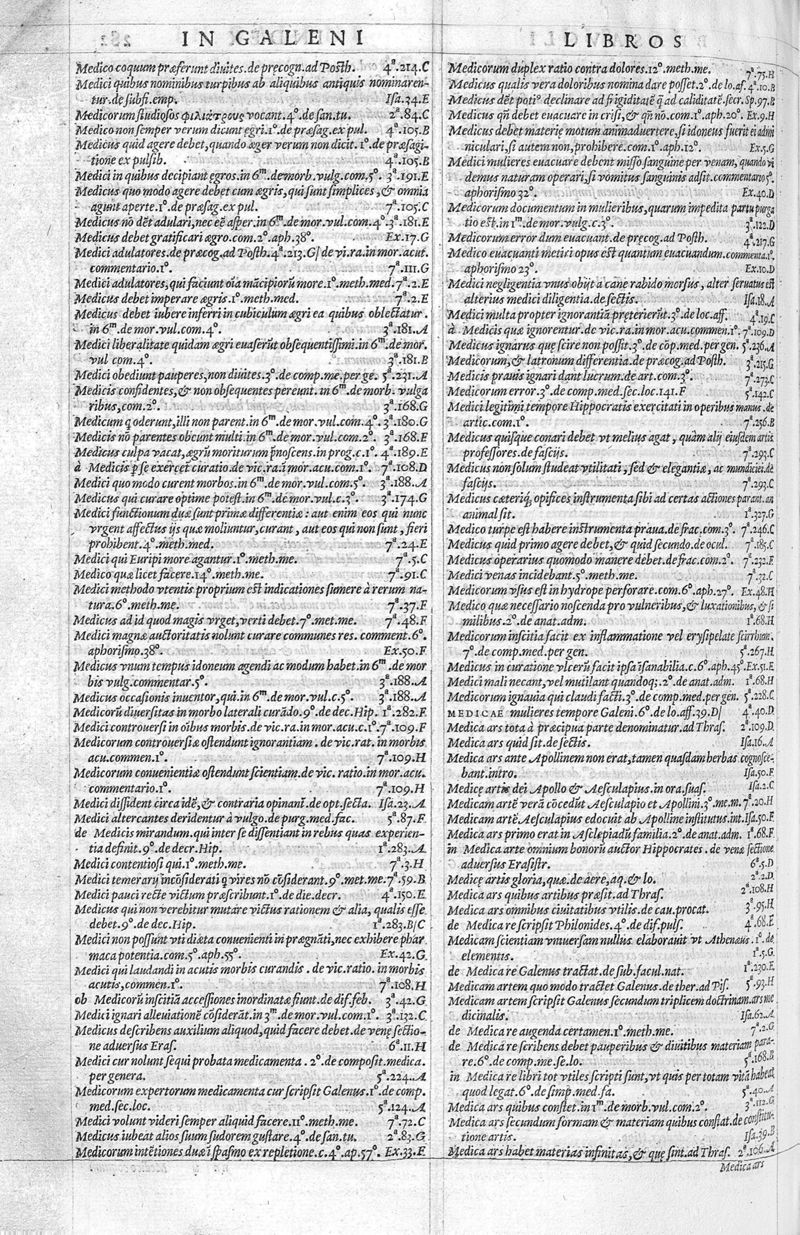 IN GALENI
Medico coquum præferunt diuites.de pręcogn.ad Posth. 4ª.214.C
Medici quibus nominibus turpibus ab aliquibus antiquis nominaren-
tur.de subfi.emp. Isa.34.E
Medicorum studiosos φιλιάτρους vocant.4º.de san.tu. 2ª.84.C
Medico non semper verum dicunt ęgri.1º.de præsag.ex pul. 4ª.105.B
Medicus quid agere debet,quando æger verum non dicit. 1º.de præsagi-
tione ex pulsib. 4ª.105.B
Medici in quibus decipiant egros.in 6m.demorb.vulg.com.5º. 3ª.191.E
Medicus quo modo agere debet cum ægris,qui sunt simplices,& omnia
agunt aperte.1º.de præsag.ex pul. 7ª.105.C
Medicus nō dēt adulari,nec eē asper.in 6m.de mor.vul.com.4º.3ª.181.E
Medicus debet gratificari ægro.com.2º.aph.38º. Ex.17.G
Medici adulatores.de præcog.ad Posth.4ª.213.G/de vi.ra in mor.acut.
commentario.1º. 7ª.111.G
Medici adulatores,qui faciunt oīa mācipiorū more.1º.meth.med.7ª.2.E
Medicus debet imperare ægris.1º.meth.med. 7ª.2.E
Medicus debet iubere inferri in cubiculum ægri ea quibus oblectatur.
in 6m.de mor.vul.com.4º. 3ª.181.A
Medici liberalitate quidam ægri euaserūt obsequentissimi.in 6m.de mor.
vul com.4º. 3ª.181.B
Medici obediunt pauperes,non diuites.3º.de comp.me.per ge. 5ª.231.A
Medicis confidentes,& non obsequentes pereunt.in 6m.de morb.vulga
ribus,com.2º. 3ª.168.G
Medicum q̄ oderunt,illi non parent.in 6m.de mor.vul.com.4º. 3ª.180.G
Medicis nō parentes obeunt multi.in 6m.de mor.vul.com.2º. 3ª.168.F
Medicus culpa vacat,ægrū moriturum p̄noscens.in prog.c.1º. 4ª.189.E
à Medicis p̄ se exercet̄ curatio.de vic.ra ā mor.acu.com.1º. 7ª.108.D
Medici quo modo curent morbos.in 6m.de mor.vul.com.5º. 3ª.188.A
Medicus qui curare optime potest.in 6m.de mor.vul.c.3º. 3ª.174.G
Medici functionum duæ sunt primæ differentiæ: aut enim eos qui nunc
vrgent affectus ijs quæ moliuntur,curant,aut eos qui non sunt,fieri
prohibent.4º.meth.med. 7ª.24.E
Medici qui Euripi more agantur.1º.meth.me. 7ª.5.C
Medico quæ licet facere.14º.meth.me. 7ª.91.C
Medici methodo vtentis proprium est indicationes sumere à rerum na-
tura.6º.meth.me. 7ª.37.F
Medicus ad id quod magis vrget,verti debet.7º.met.me. 7ª.48.F
Medici magnæ auctoritatis nolunt curare communes res.comment.6º.
aphorismo.38º. Ex.50.F
Medicus vnum tempus idoneum agendi ac modum habet.in 6m.de mor
bis vulg.commentar.5º. 3ª.188.A
Medicus occasionis inuentor,qui.in 6m.de mor.vul.c.5º. 3ª.188.A
Medicorū diuersitas in morbo laterali curādo.9º.de dec.Hip. 1ª.282.F
Medici controuersi in oībus morbis.de vic.ra.in mor.acu.c.1º.7ª.109.F
Medicorum controuersiæ ostendunt ignorantiam.de vic.rat.in morbis
acu.commen.1º. 7ª.109.H
Medicorum conuenientiæ ostendunt scientiam.de vic.ratio.in mor.acu.
commentario.1º. 7ª.109.H
Medici dissident circa idē,& contraria opinant̄.de opt.secta. Isa.23.A
Medici altercantes deridentur à vulgo.de purg.med.fac. 5ª.87.F
de Medicis mirandum.qui inter se dissentiant in rebus quas experien-
tia definit.9º.de decr.Hip. 1ª.283.A
Medici contentiosi qui.1º.meth.me. 7ª.3.H
Medici temerarij incōsiderati q̄ vires nō cōsiderant.9º.met.me.7ª.59.B
Medici pauci recte victum præscribunt.1º.de die.decr. 4ª.150.E
Medicus qui non verebitur mutare victus rationem & alia,qualis esse
debet.9º.de dec.Hip. 1ª.283.B/C
Medici non possunt vti diæta conuenienti in prægnāti,nec exhibere phar
maca potentia.com.5º.aph.55º. Ex.42.G
Medici qui laudandi in acutis morbis curandis.de vic.ratio.in morbis
acutis,commen.1º. 7ª.108.H
ob Medicorū inscitiā accessiones inordinatæ fiunt.de dif.feb. 3ª.42.G
Medici ignari alleuiationē cōsiderāt.in 3m.de mor.vul.com.1º. 3ª.132.C
Medicus describens auxilium aliquod,quid facere debet.de venę sectio-
ne aduersus Eras. 6ª.11.H
Medici cur nolunt sequi probata medicamenta.2º.de composit.medica.
per genera. 5ª.224.A
Medicorum expertorum medicamenta cur scripsit Galenus.1º.de comp.
med.sec.loc. 5ª.124.A
Medici volunt videri semper aliquid facere.11º.meth.me. 7ª.72.C
Medicus iubeat alios suum sudorem gustare.4º.de san.tu. 2ª.83.G
Medicorum intētiones duæ ī spasmo ex repletione.c.4º.ap.57º. Ex.33.E
LIBROS
Medicorum duplex ratio contra dolores.12º.meth.me. 7ª.75.H
Medicus qualis vera doloribus nomina dare posset.2º.de lo.af. 4ª.10.B
Medicus dēt poti⁹ declinare ad frigiditatē q̄ ad caliditatē.secr.Sp.97.B
Medicus qn̄ debet euacuare in crisi,& qn̄ nō.com.1º.aph.20º. Ex.9.H
Medicus debet materię motum animaduertere,si idoneus fuerit ei admi
niculari,si autem non,prohibere.com.1º.aph.12º. Ex.5.G
Medici mulieres euacuare debent misso sanguine per venam,quando vi
demus naturam operari,si vomitus sanguinis adsit.commentario 5º.
aphorismo 32º. Ex.40.D
Medicorum documentum in mulieribus,quarum impedita partu purga
tio est.in 1m.de mor.vulg.c.3º. 3ª.122.D
Medicorum error dum euacuant.de pręcog.ad Posth. 4ª.217.G
Medico euacuanti metiri opus est quantum euacuandum.commenta.1º.
aphorismo 23º. Ex.10.D
Medici negligentia vnus obijt a cane rabido morsus,alter seruatus est
alterius medici diligentia.de sectis. Isa.18.A
Medici multa propter ignorantiā pręterierūt.3º.de loc.aff. 4ª.19.C
à Medicis quæ ignorentur.de vic.ra in mor.acu.commen.1º. 7ª.109.D
Medicus ignarus quę scire non possit.3º.de cōp.med.per gen. 5ª.236.A
Medicorum,& latronum differentia.de præcog.ad Posth. 3ª.215.G
Medicis prauis ignari dant lucrum.de art.com.3º. 7ª.273.C
Medicorum error.3º.de comp.med.sec.loc.141.F 5ª.142.C
Medici legitimi tempore Hippocratis exercitati in operibus manus.de
artic.com.1º. 7ª.256.B
Medicus quisque conari debet vt melius agat,quàm alij eiusdem artis
professores.de fascijs. 7ª.293.C
Medicus non solum studeat vtilitati,sed & elegantiæ,ac mundiciei.de
fascijs. 7ª.293.C
Medicus cæteriq̄; opifices instrumenta sibi ad certas actiones parant.an
animal sit. 1ª.327.G
Medico turpe est habere instrumenta praua.de frac.com.3º. 7ª.246.C
Medicus quid primo agere debet,& quid secundo.de ocul. 7ª.185.C
Medicus operarius quomodo manere debet.de frac.com.2º. 7ª.232.E
Medici venas incidebant.5º.meth.me. 7ª.32.C
Medicorum vsus est in hydrope perforare.com.6º.aph.27º. Ex.48.H
Medico quæ necessario noscenda pro vulneribus,& luxationibus,& si
milibus.2º.de anat.adm. 1ª.68.H
Medicorum inscitia facit ex inflammatione vel erysipelate scirrhum.
7º.de comp.med.per gen. 5ª.267.H
Medicus in curatione vlcerū facit ipsa īsanabilia.c.6º.aph.45º.Ex.51.E
Medici mali necant,vel mutilant quandoq̄;.2º.de anat.adm. 1ª.68.H
Medicorum ignauia qui claudi facti.3º.de comp.med.per gen. 5ª.228.C
MEDICAE mulieres tempore Galeni.6º.de lo.aff.39.D/ 4ª.40.D
Medica ars tota à præcipua parte denominatur.ad Thras. 2ª.109.D
Medica ars quid sit.de sectis. Isa.16.A
Medica ars ante Apollinem non erat,tamen quasdam herbas cognosce-
bant.intro. Isa.50.F
Medicę artis dei Apollo & Aesculapius.in ora.suas. Isa.2.C
Medicam artē verā cōcedūt Aesculapio et Apollini.3º.me.m.7ª.20.H
Medicam artē Aesculapius edocuit ab Apolline institutus.int.Isa.50.F
Medica ars primo erat in Asclepiadū familia.2º.de anat.adm. 1ª.68.F
in Medica arte omnium bonorū auctor Hippocrates.de venæ sectione
aduersus Erasistr. 6ª.5.D
Medicę artis gloria,quæ.de aere,aq.& lo. 2ª.2.D.
Medica ars quibus artibus præsit.ad Thras. 2ª.108.H
Medica ars omnibus ciuitatibus vtilis.de cau.procat. 3ª.95.H
de Medica re scripsit Philonides.4º.de dif.puls. 4ª.68.E
Medicam scientiam vniuersam nullus elaborauit vt Athenæus.1º.de
elementis. 1ª.5.G.
de Medica re Galenus tractat.de sub.facul.nat. 1ª.230.E
Medicam artem quo modo tractet Galenus.de ther.ad Pis. 5ª.93.H
Medicam artem scripsit Galenus secundum triplicem doctrinam.ars me
dicinalis. Isa.62.A
de Medica re augenda certamen.1º.meth.me. 7ª.2.G
de Medica re scribens debet pauperibus & diuitibus materiam para-
re.6º.de comp.me.se.lo. 5ª.168.B
in Medica re libri tot vtiles scripti sunt,vt quis per totam vitā habeat
quod legat.6º.de simp.med.fa. 5ª.40.A
Medica ars quibus constet.in 1m.de morb.vul.com.2º. 3ª.112.G
Medica ars secundum formam & materiam quibus constat.de constitu-
tione artis. Isa.39.B
Medica ars habet materias infinitas,& quę sint.ad Thras. 2ª.106.A
Medica ars